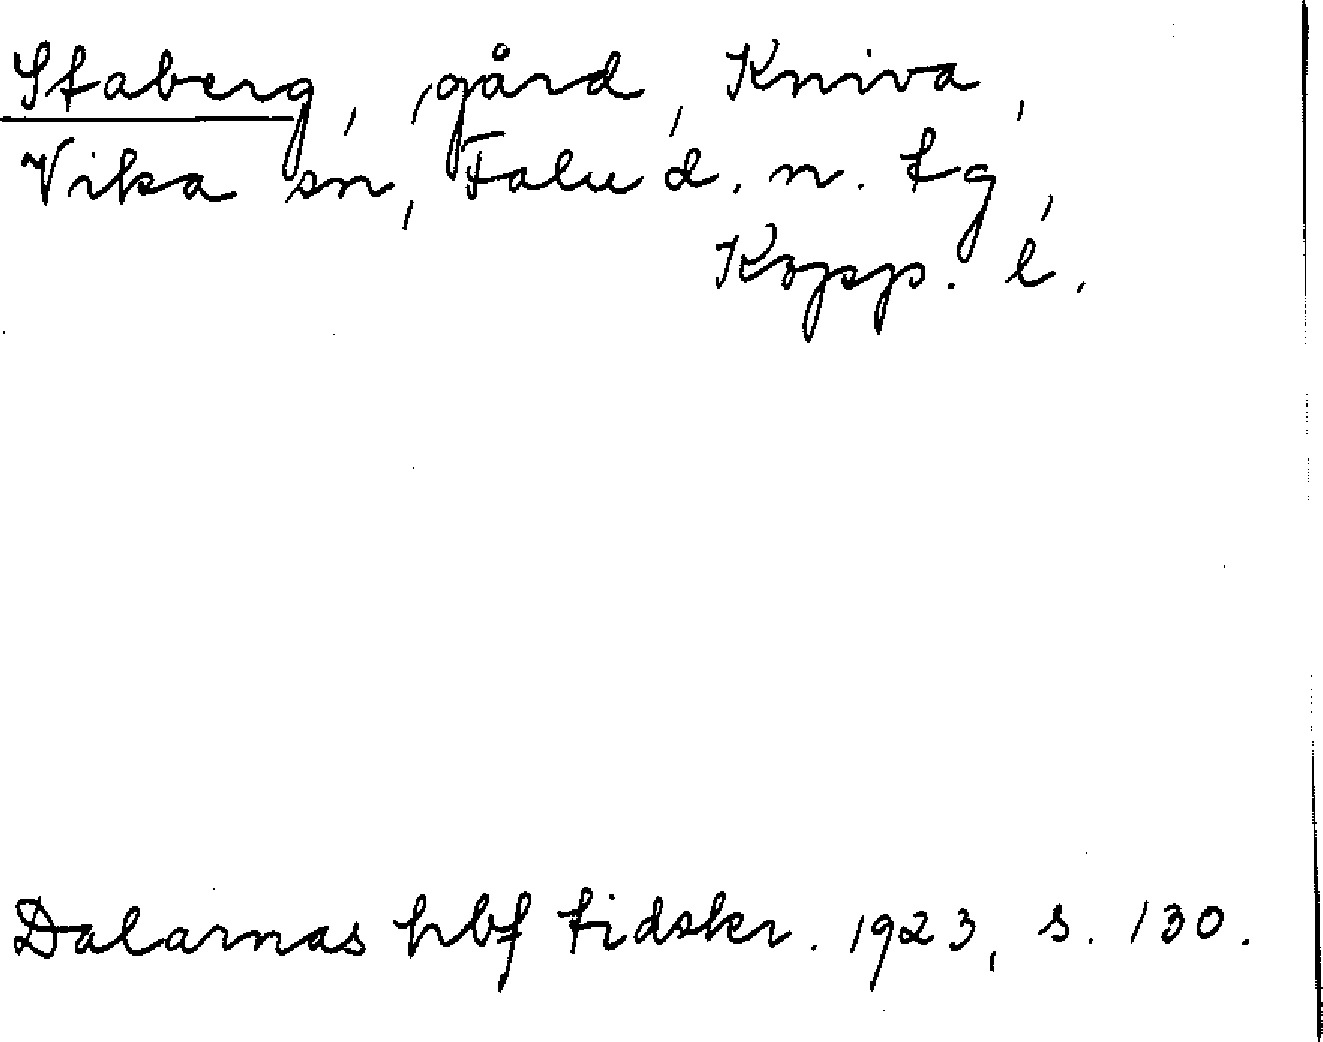 Staberg, gård, Kniva,
Vika sn, Falu d. n. tg,
Kopp. l.
Dalarnas hbf tidskr. 1923, s. 130.